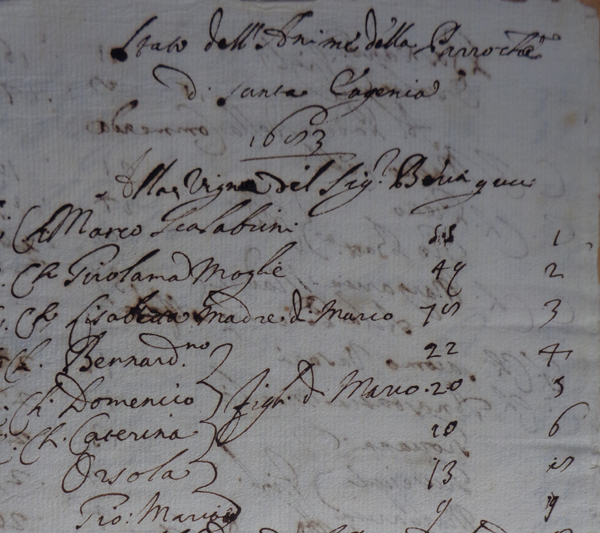 Stato dell'Anime della Parrochia
di Santa Eugenia
Alla Vigna del Sig.r
Ch Marco Scalabrini 1
Ch Girolama Moglie 49 2
Ch Lisabetta Madre di Marco 3
Ch. Bernard.no 22 4
Ch. Domenico figli di Marco 20 5
Ch. Caterina 6
Orsola 13
Gio: Maria 9